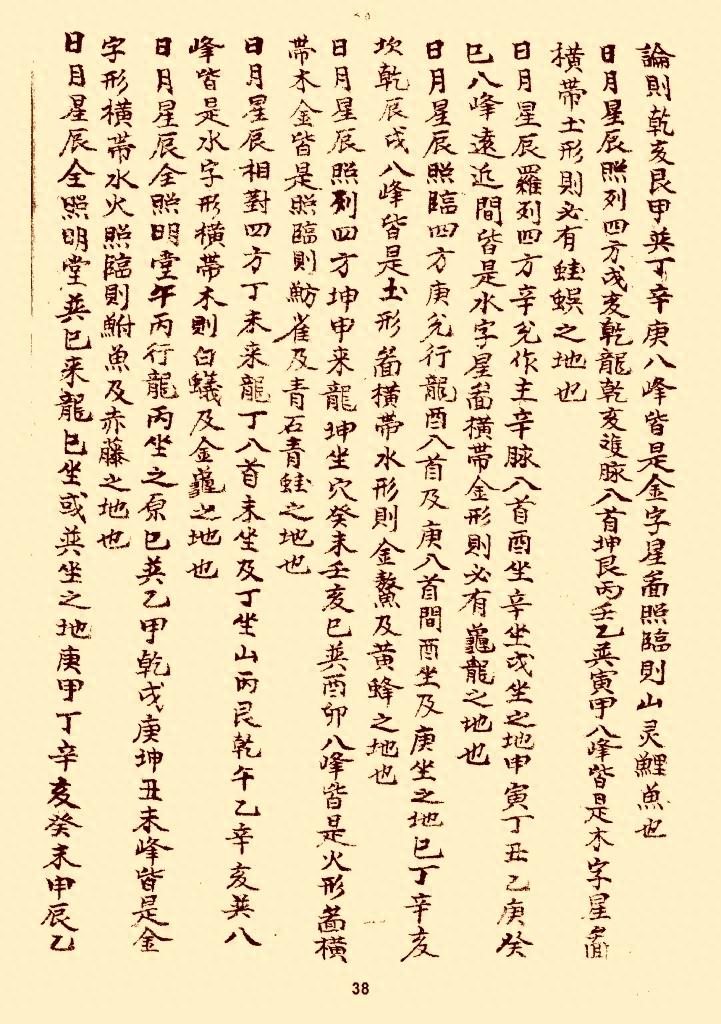 論則乾亥艮甲巽丁辛庚八峰皆是金字星畓照臨則山灵鯉魚也
日月星辰照列四方戌亥乾龍乾亥複脉入首坤艮丙壬乙巽寅甲八峰皆是木字星畓
橫帶土形則必有蛙蜈之地也
日月星辰羅列四方辛兌作主辛脉入首酉坐辛坐戌坐之地甲寅丁丑乙庚癸
巳八峰遠近間皆是水字星畓橫帶金形則必有龜龍之地也
日月星辰照臨四方庚兌行龍酉入首及庚入首間酉坐及庚坐之地巳丁辛亥
坎乾辰戌八峰皆是土形畓橫帶水形則金鰲及黃蜂之地也
日月星辰照列四方坤申来龍坤坐穴癸未壬亥巳巽酉卯八峰皆是火形畓橫
帶木金皆是照臨則魴雀及青石青蛙之地也
日月星辰相對四方丁未来龍丁入首未坐及丁坐山丙艮乾午乙辛亥巽八
峰皆是水字形橫帶木則白蟻及金龜之地也
日月星辰全照明堂午丙行龍丙坐之原巳巽乙甲乾戌庚坤丑未峰皆是金
字形橫帶水火照臨則鮒魚及赤藤之地也
日月星辰全照明堂巽巳来龍巳坐或巽坐之地庚甲丁辛亥癸未申辰乙
38